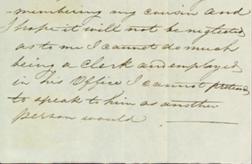 -membering my cousin and
I hope it will not be neglected
as to me I cannot do much
being a Clerk and employed
in his Office I cannot pretend
to speak to him as another
person would